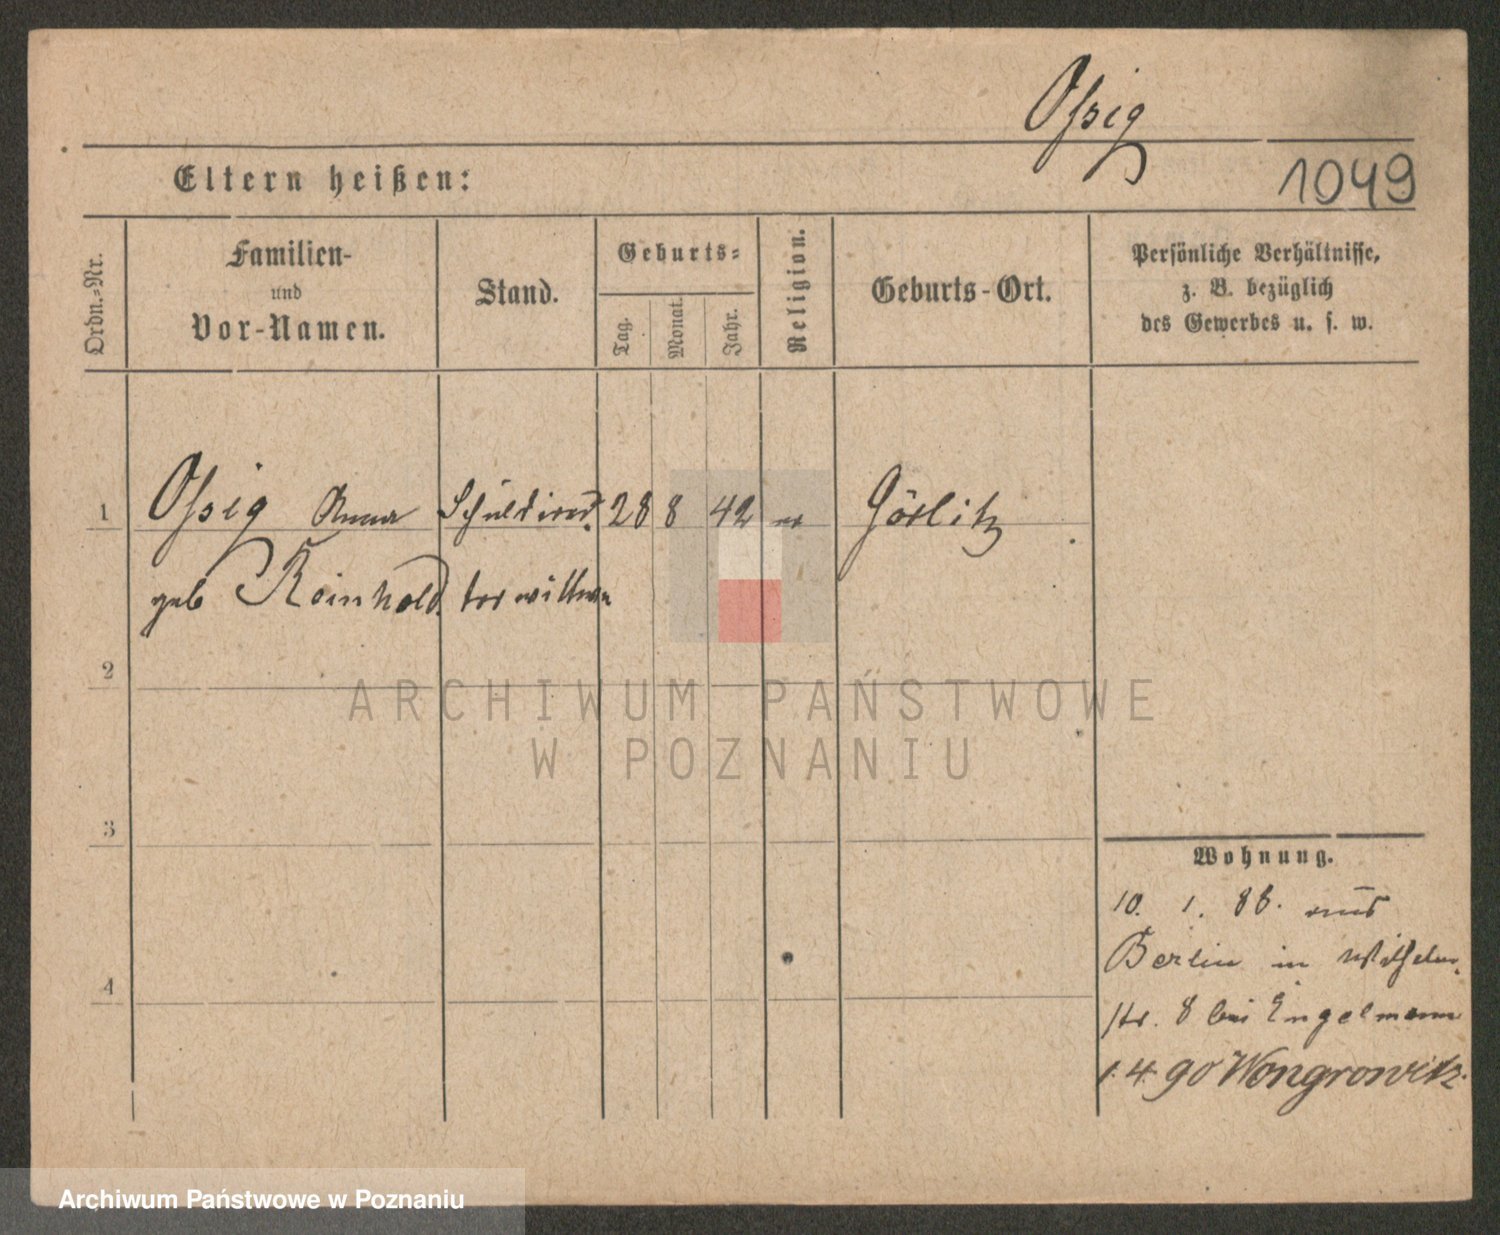 Ossig
Eltern heißen:
1049
Ordn.-Nr.
Familien-
und
Vor-Namen.
Stand.
Geburts-
Tag.
Monat.
Jahr.
Religion.
Geburts-Ort.
Persönliche Verhältnisse,
z. B. bezüglich
des Gewerbes u. s. w.
1 Ossig Anna Schuldirec 28 8 42 ev Görlitz
geb Reinhold torwittwe
2
ARCHIWUM PAŃSTWOWE
W POZNANIU
3
Wohnung.
10. 1. 88. aus
Berlin in Wilhelm
4
str. 8 bei Engelmann
1.4.90 Wongrowitz.
Archiwum Państwowe w Poznaniu